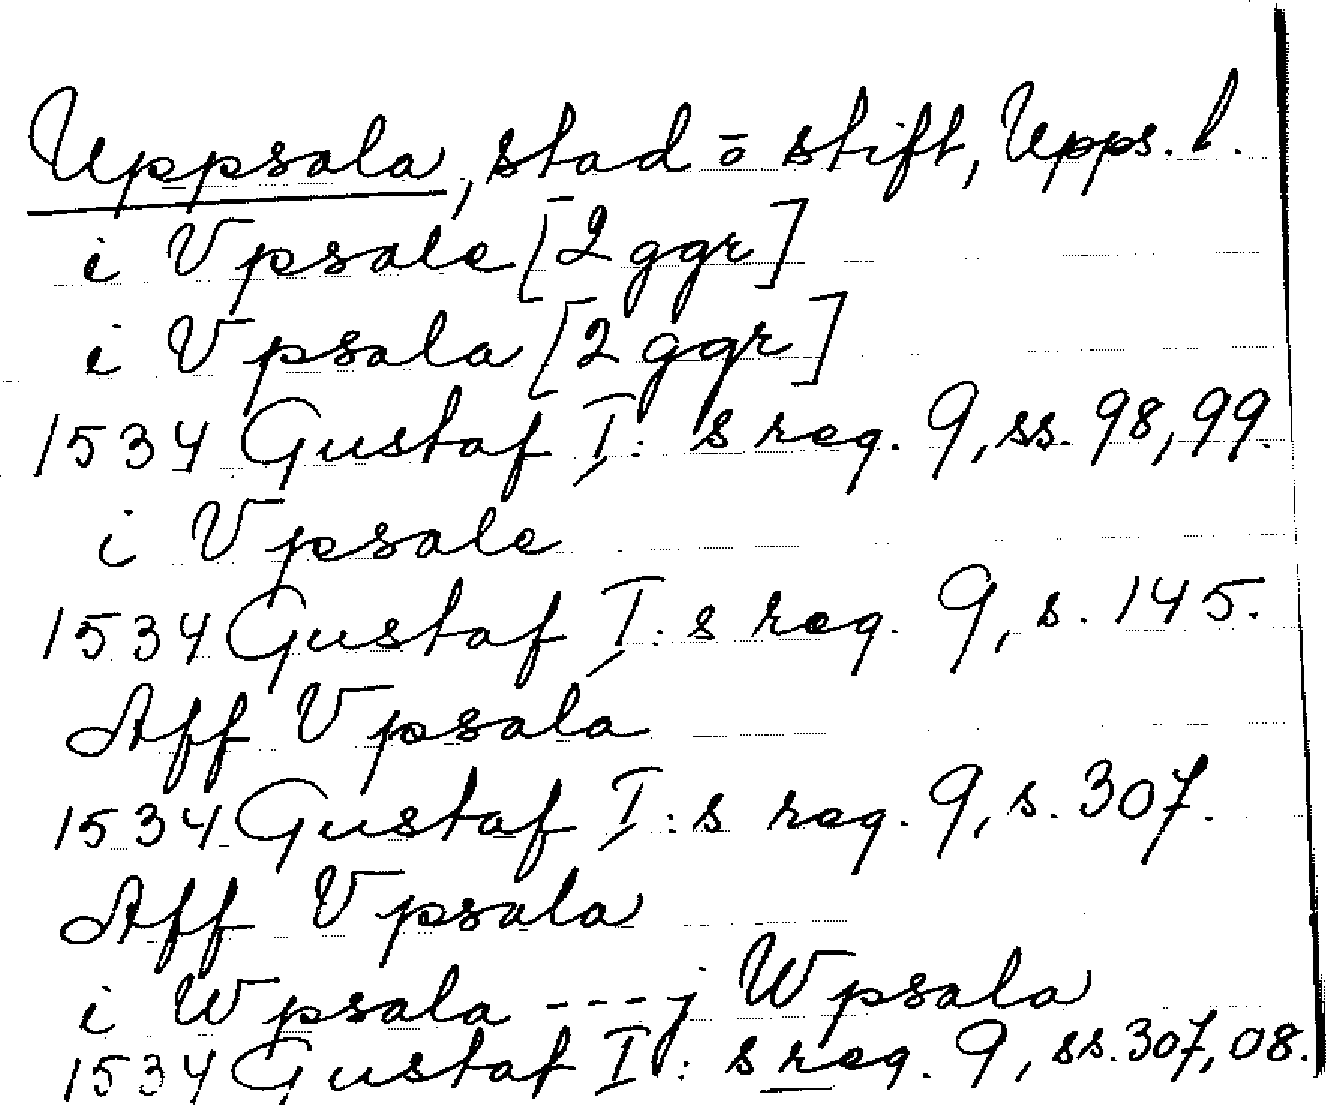 Uppsala, stad o stift, Upps. l.
i Vpsale [2 ggr]
i Vpsala [2 ggr]
1534 Gustaf I: s reg. 9, ss. 98, 99.
i Vpsale
1534 Gustaf I: s reg. 9, s. 145.
Aff Vpsala
1534 Gustaf I: s reg. 9, s. 307.
Aff Vpsala
i Wpsala --- j Wpsala
1534 Gustaf I: s reg. 9, ss. 307, 08.